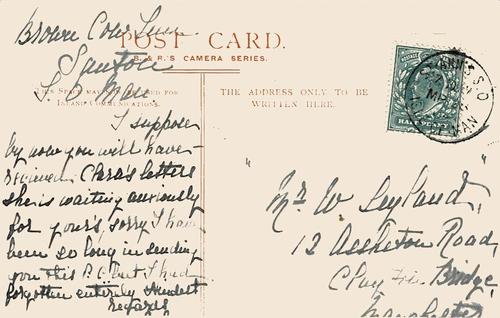 Brown Cow Inn
Santon
I. Man
POST CARD.
B. & R.'S CAMERA SERIES.
THIS SPACE MAY BE USED FOR
INLAND COMMUNICATIONS.
THE ADDRESS ONLY TO BE
WRITTEN HERE.
I suppose
by now you will have
received Clara's letters
she is waiting anxiously
for your's, sorry I have
been so long in sending
you this P.C. but I had
forgotten entirely Kindest
regards
Mr W Leyland,
12 Assheton Road,
Clayton Bridge,
Manchester
S.O
MAN